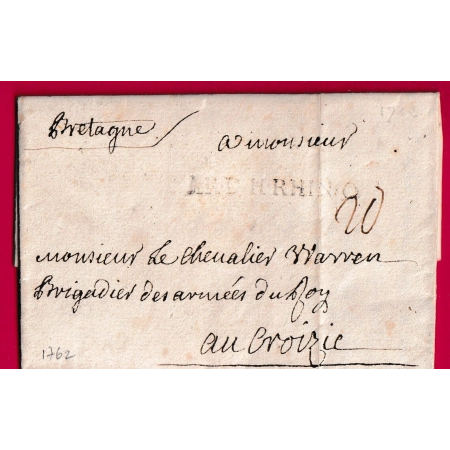 Bretagne
A monsieur
ARDHRHIN
20
monsieur Le Chevalier Warren
Brigadier des armées du Roy
au Croizic
1762